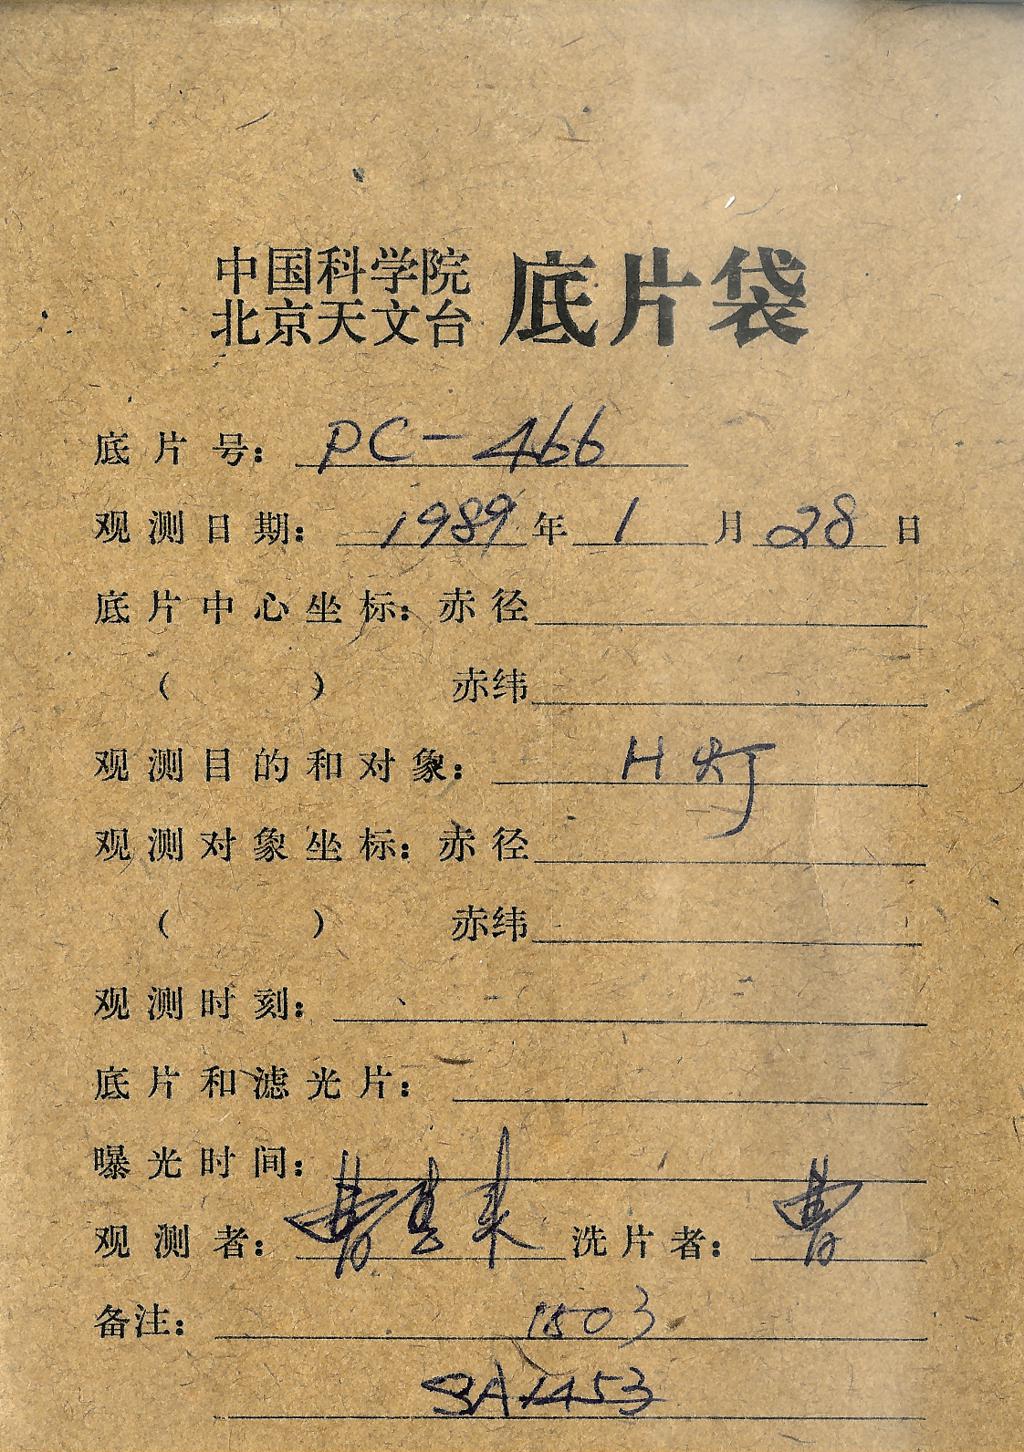 中国科学院
北京天文台 底片袋
底片号: PC-466
观测日期: 1989年1月28日
底片中心坐标: 赤径
( ) 赤纬
观测目的和对象: H灯
观测对象坐标: 赤径
( ) 赤纬
观测时刻:
底片和滤光片:
曝光时间:
观测者: 曹 洗片者: 曹
备注: 1503
SA1453